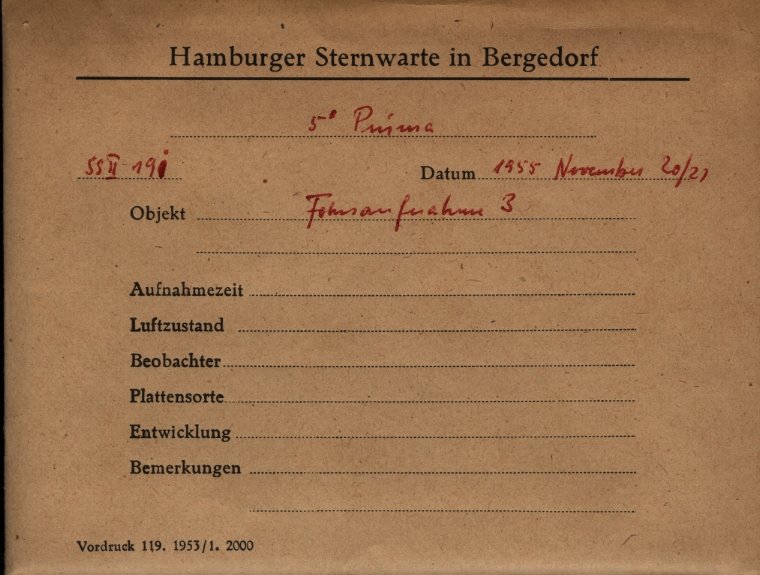 Hamburger Sternwarte in Bergedorf
5° Prisma
55 II - 191
Datum 1955 November 20/21
Objekt Fokusaufnahme 3
Aufnahmezeit
Luftzustand
Beobachter
Plattensorte
Entwicklung
Bemerkungen
Vordruck 119. 1953/1. 2000